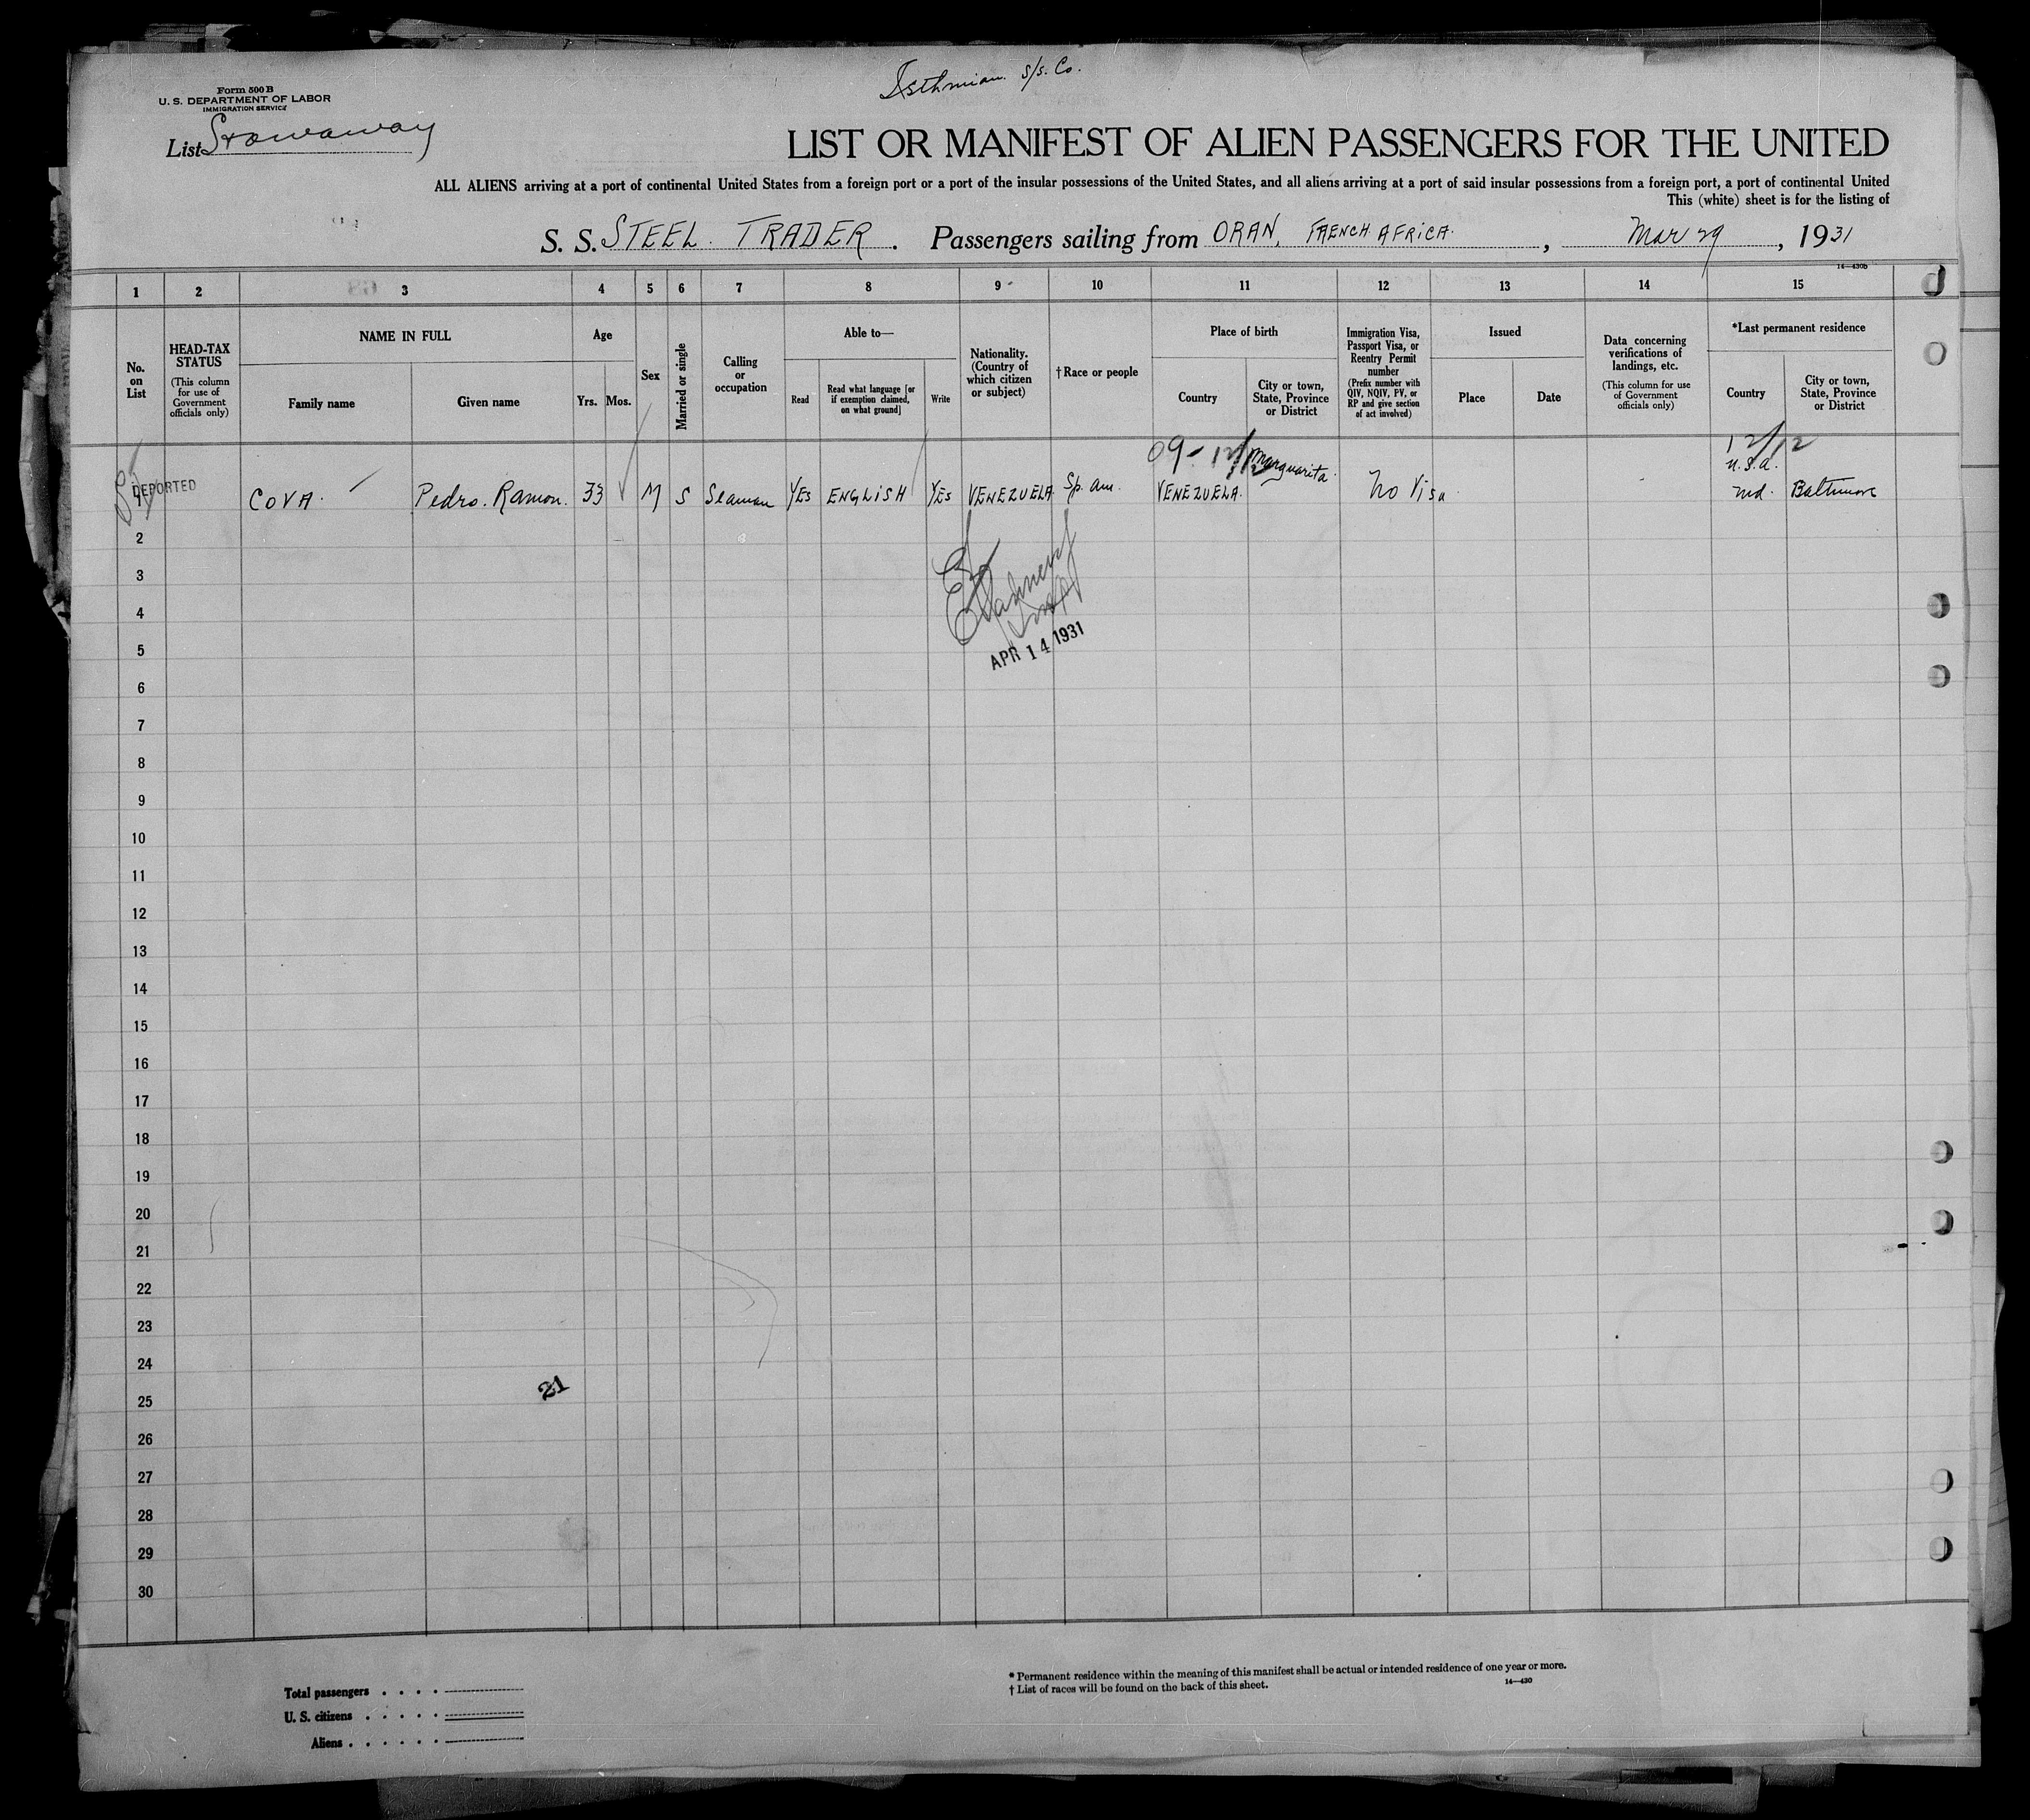 Isthmian S/S. Co.
Form 500 B
U. S. DEPARTMENT OF LABOR
IMMIGRATION SERVICE
List Stowaway
LIST OR MANIFEST OF ALIEN PASSENGERS FOR THE UNITED
ALL ALIENS arriving at a port of continental United States from a foreign port or a port of the insular possessions of the United States, and all aliens arriving at a port of said insular possessions from a foreign port, a port of continental United
This (white) sheet is for the listing of
S. S. STEEL TRADER. Passengers sailing from ORAN, FRENCH AFRICA., Mar 29, 1931
14—430b
1 2 3 4 5 6 7 8 9 10 11 12 13 14 15
No. on List
HEAD-TAX STATUS (This column for use of Government officials only)
NAME IN FULL
Family name
Given name
Age
Yrs. Mos.
Sex
Married or single
Calling or occupation
Able to—
Read
Read what language [or if exemption claimed, on what ground]
Write
Nationality. (Country of which citizen or subject)
†Race or people
Place of birth
Country
City or town, State, Province or District
Immigration Visa, Passport Visa, or Reentry Permit number (Prefix number with QIV, NQIV, PV, or RP and give section of act involved)
Issued
Place
Date
Data concerning verifications of landings, etc. (This column for use of Government officials only)
*Last permanent residence
Country
City or town, State, Province or District
09- 12/12 Marguarita. 12/12
U.S.A.
1 DEPORTED COVA. Pedro. Ramon. 33 M S Seaman YES ENGLISH YES VENEZUELA Sp. am. VENEZUELA. No Visa Md. Baltimore
2
3
4
5
APR 14 1931
6
7
8
9
10
11
12
13
14
15
16
17
18
19
20
21
22
23
24
21
25
26
27
28
29
30
Total passengers . . . .
U. S. citizens . . . . .
Aliens . . . . . .
* Permanent residence within the meaning of this manifest shall be actual or intended residence of one year or more.
† List of races will be found on the back of this sheet.
14—430